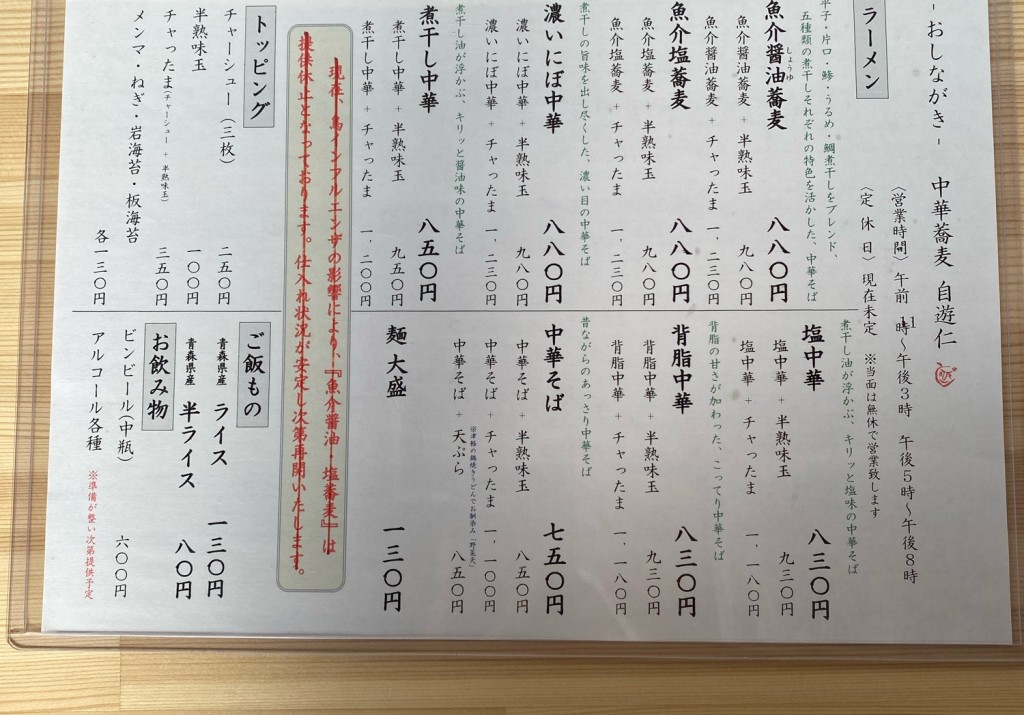 -おしながき- 中華蕎麦 自遊仁
〈営業時間〉午前11時～午後3時 午後5時～午後8時
〈定休日〉現在未定 ※当面は無休で営業致します
ラーメン
平子・片口・鯵・うるめ・鯛煮干しをブレンド、
五種類の煮干しそれぞれの特色を活かした、中華そば
魚介醤油蕎麦 八八〇円
しょうゆ
魚介醤油蕎麦 + 半熟味玉 九八〇円
魚介醤油蕎麦 + チャったま 一、二三〇円
魚介塩蕎麦 八八〇円
魚介塩蕎麦 + 半熟味玉 九八〇円
魚介塩蕎麦 + チャったま 一、二三〇円
煮干しの旨味を出し尽くした、濃い目の中華そば
濃いにぼ中華 八八〇円
濃いにぼ中華 + 半熟味玉 九八〇円
濃いにぼ中華 + チャったま 一、二三〇円
煮干し油が浮かぶ、キリッと醤油味の中華そば
煮干し中華 八五〇円
煮干し中華 + 半熟味玉 九五〇円
煮干し中華 + チャったま 一、二〇〇円
煮干し油が浮かぶ、キリッと塩味の中華そば
塩中華 八三〇円
塩中華 + 半熟味玉 九三〇円
塩中華 + チャったま 一、一八〇円
背脂の甘さが加わった、こってり中華そば
背脂中華 八三〇円
背脂中華 + 半熟味玉 九三〇円
背脂中華 + チャったま 一、一八〇円
昔ながらのあっさり中華そば
中華そば 七五〇円
中華そば + 半熟味玉 八五〇円
中華そば + チャったま 一、一〇〇円
※津軽の鍋焼きうどんでお馴染み「野菜天」
中華そば + 天ぷら 八五〇円
麺 大盛 一三〇円
現在、鳥インフルエンザの影響により、『魚介醤油・塩蕎麦』は
提供休止となっております。仕入れ状況が安定し次第再開いたします。
トッピング
チャーシュー(三枚) 二五〇円
半熟味玉 一〇〇円
チャったま(チャーシュー + 半熟味玉) 三五〇円
メンマ・ねぎ・岩海苔・板海苔 各一三〇円
ご飯もの
青森県産 ライス 一三〇円
青森県産 半ライス 八〇円
お飲み物
ビンビール(中瓶) 六〇〇円
アルコール各種
※準備が整い次第提供予定